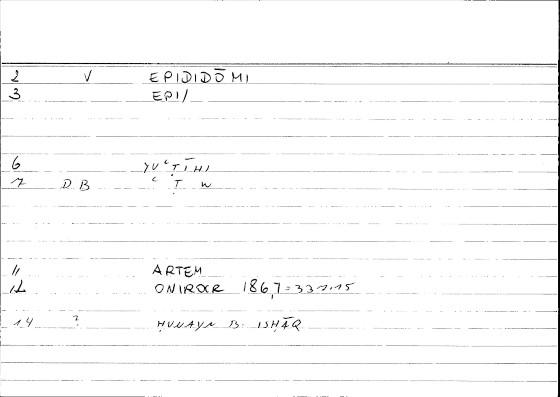 2 V EPIDIDŌMI
3 EPI/
6 YUʿṬĪHI
7 D B ʿ Ṭ W
11 ARTEM
12 ONIROCR 186,7 = 337.15
14 ? ḤUNAYN B. ISḤĀQ